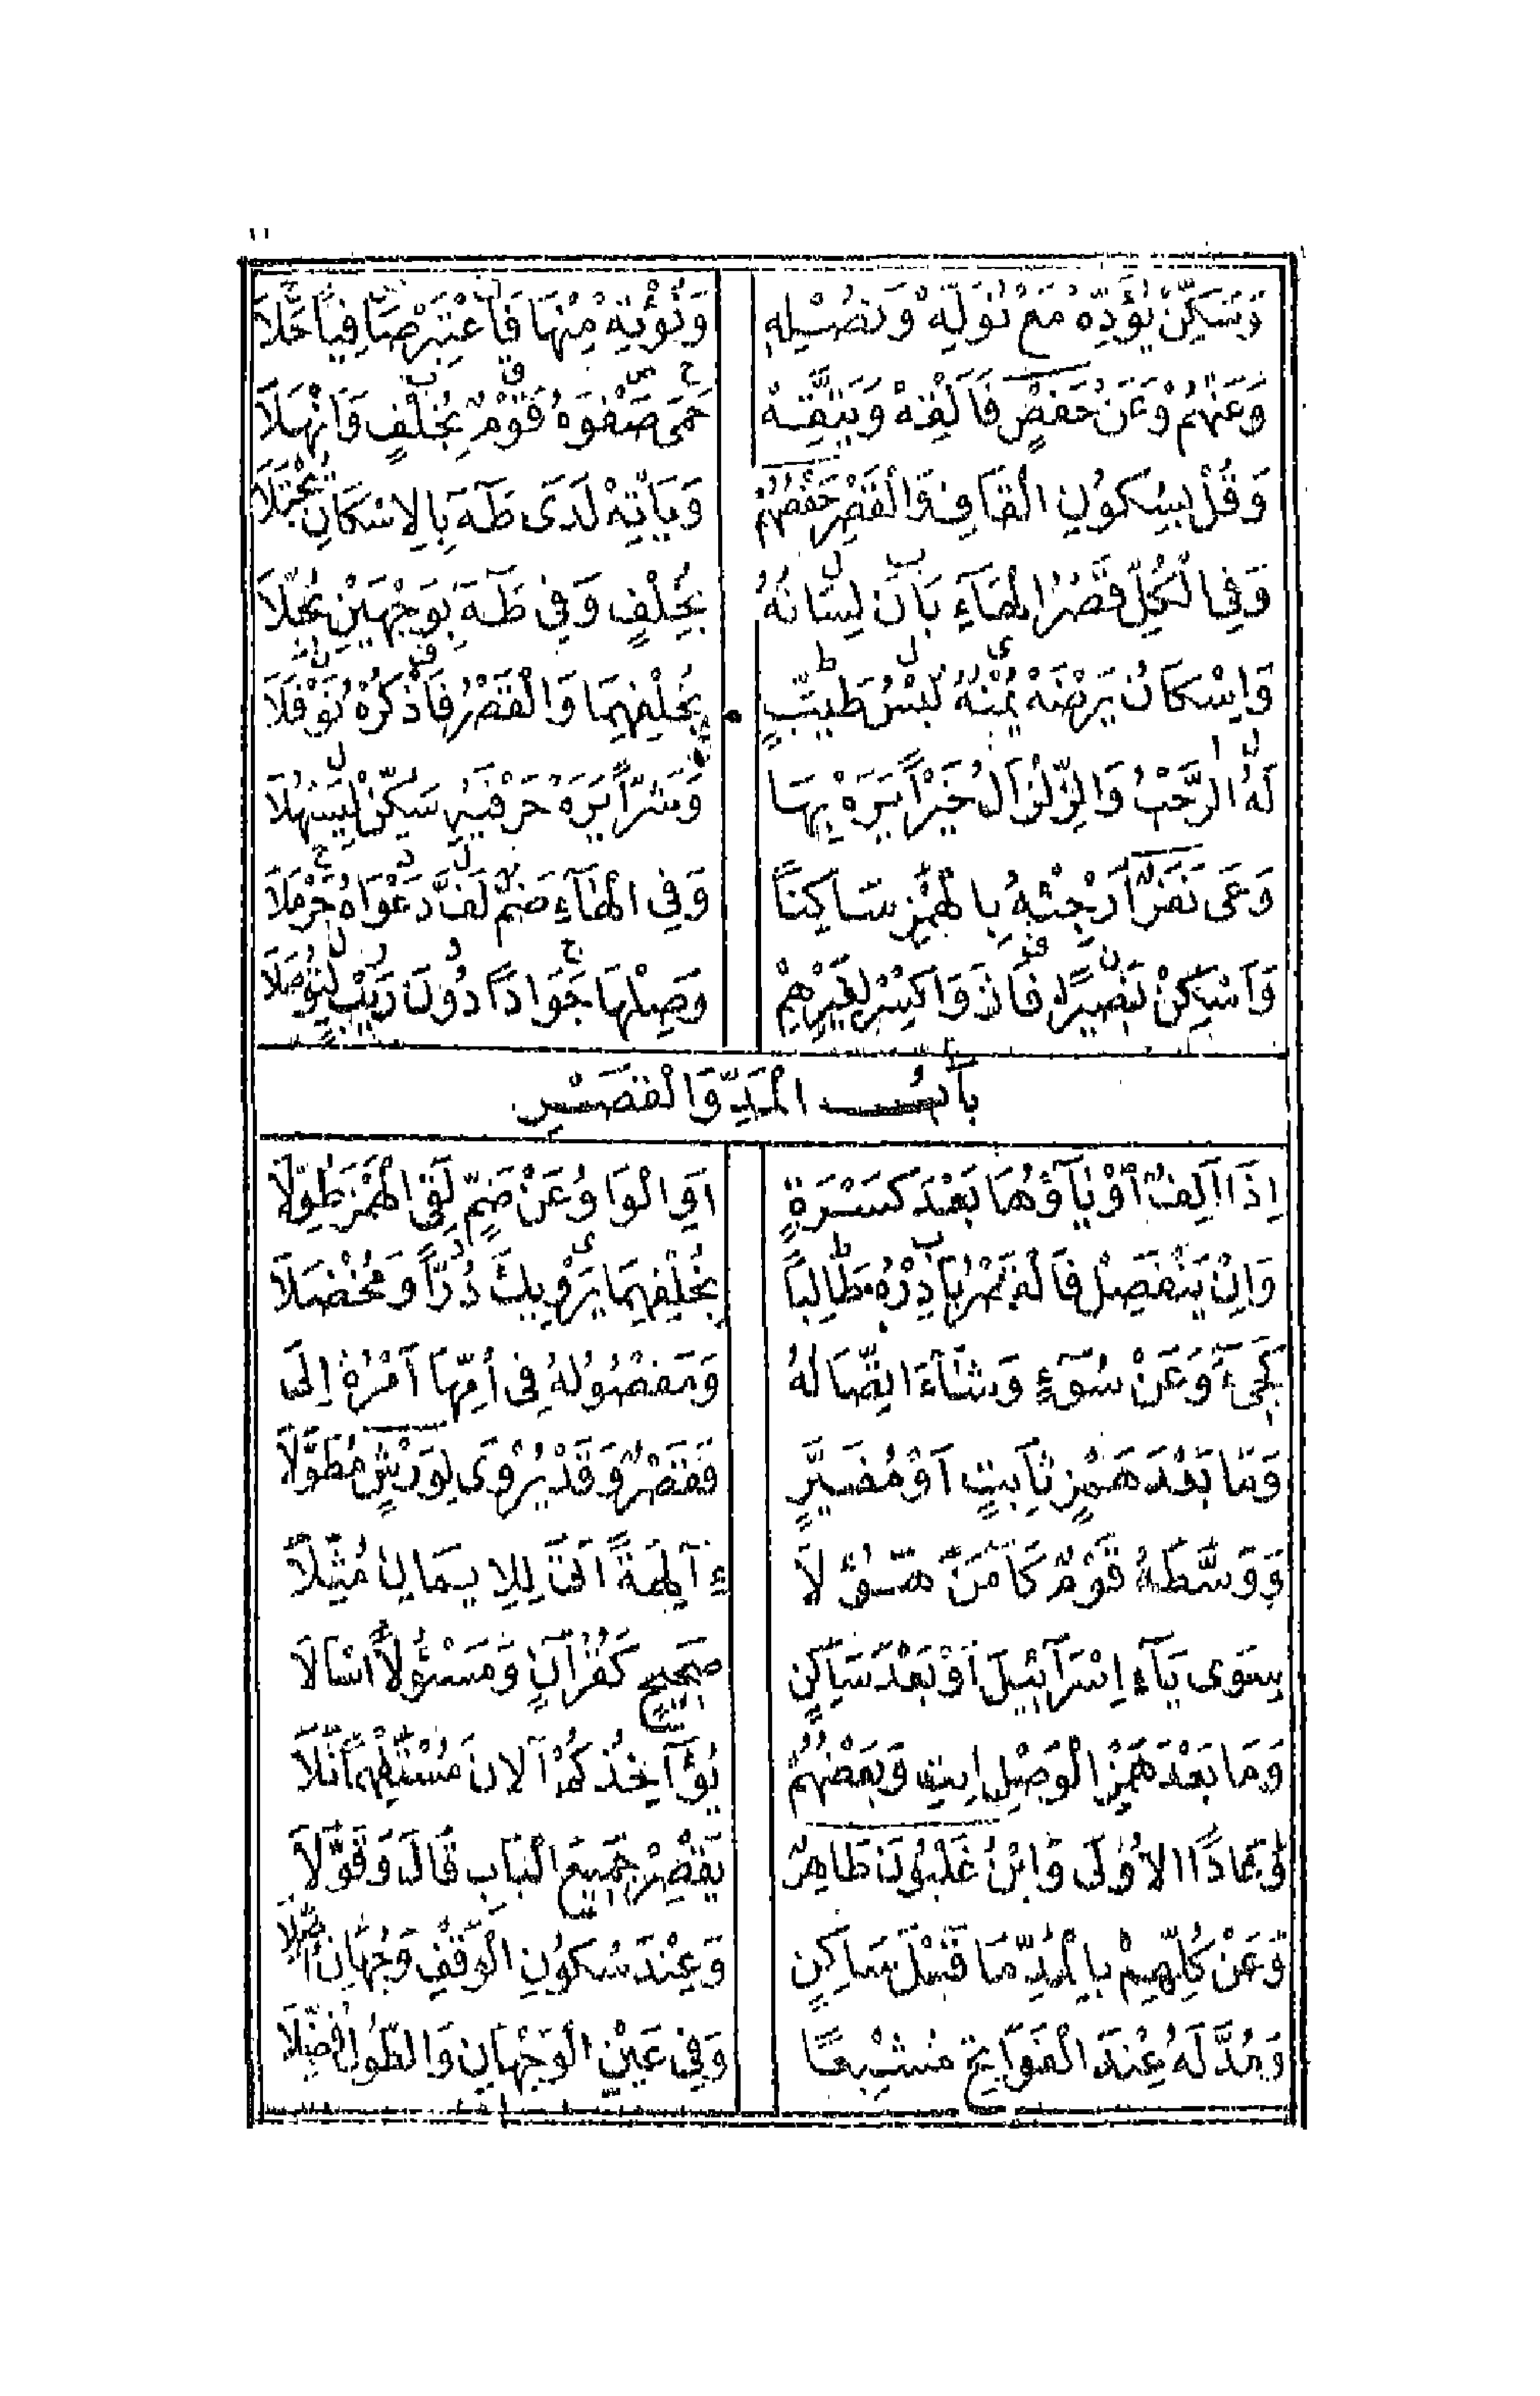 ١١
وَسَكِّنْ يُؤَدِّهْ مَعْ نُوَلِّهْ وَنُصْلِهِ وَنُؤْتِهْ مِنْهَا فَاعْتَبِرْ صَافِيًا حَلَا
وَعَنْهُمْ وَعَنْ حَفْصٍ فَاَلْقِهْ وَيَتَّقِهْ حَمَى صَفْوَهُ قَوْمٌ بِخُلْفٍ وَاَنْهَلَا
وَقُلْ بِسُكُونِ الْقَافِ وَالْقَصْرِ حَفْصُهُمْ وَيَأْتِهْ لَدَى طٰهَ بِالْاِسْكَانِ يُجْتَلَا
وَفِي الْكُلِّ قَصْرُ الْهَآءِ بَانَ لِسَانُهُ بِخُلْفٍ وَفِي طٰهَ بِوَجْهَيْنِ بُجِّلَا
وَاِسْكَانُ يَرْضَهْ يُمْنُهُ لُبْسُ طَيِّبٍ بِخُلْفِهِمَا وَالْقَصْرُ فَاذْكُرْهُ نَوْفَلَا
لَهُ الرُّحْبُ وَالزِّلْزَالُ خَيْرًا يَرَهْ بِهَا وَشَرًّا يَرَهْ حَرْفَيْهِ سَكِّنْ لِيَسْهُلَا
وَعَى نَفَرٌ اَرْجِئْهُ بِالْهَمْزِ سَاكِنًا وَفِي الْهَآءِ ضَمٌّ لَفَّ دَعْوَاهُ حَرْمَلَا
وَاَسْكِنْ نَصِيرًا فَازَ وَاكْسِرْ لِغَيْرِهِمْ وَصِلْهَا جَوَادًا دُونَ رَيْبٍ لِتُوصَلَا
بَابُ الْمَدِّ وَالْقَصْرِ
اِذَا اَلِفٌ اَوْ يَآؤُهَا بَعْدَ كَسْرَةٍ اَوِ الْوَاوُ عَنْ ضَمٍّ لَقِي الْهَمْزَ طُوِّلَا
وَاِنْ يَنْفَصِلْ فَالْقَصْرُ بَادِرْهُ طَالِبًا بِخُلْفِهِمَا يَرْوِيكَ دُرًّا وَمُخْضَلَا
كَجِيْءَ وَعَنْ سُوٓءٍ وَشَآءَ اتِّصَالُهُ وَمَفْصُولُهُ فِي اُمِّهَا اَمْرُهُ اِلَى
وَمَا بَعْدَ هَمْزٍ ثَابِتٍ اَوْ مُغَيَّرٍ فَقَصْرٌ وَقَدْ يُرْوَى لِوَرْشٍ مُطَوَّلَا
وَوَسَّطَهُ قَوْمٌ كَاٰمَنَ هٰٓؤُلَا ءِ اٰلِهَةً اٰتَى لِلْاِيمَانِ مُثِّلَا
سِوَى يَآءِ اِسْرَآئِيلَ اَوْ بَعْدَ سَاكِنٍ صَحِيحٍ كَقُرْاٰنٍ وَمَسْئُولًا اسْاَلَا
وَمَا بَعْدَ هَمْزِ الْوَصْلِ اِيتِ وَبَعْضُهُمْ يُؤَآخِذُكُمْ اٰلْاٰنَ مُسْتَفْهِمًا تَلَا
وَعَادًا الْاُولَى وَابْنُ غَلْبُونَ طَاهِرٌ بِقَصْرِ جَمِيعِ الْبَابِ قَالَ وَقَوَّلَا
وَعَنْ كُلِّهِمْ بِالْمَدِّ مَا قَبْلَ سَاكِنٍ وَعِنْدَ سُكُونِ الْوَقْفِ وَجْهَانِ اُصِّلَا
وَمُدَّ لَهُ عِنْدَ الْفَوَاتِحِ مُشْبِعًا وَفِي عَيْنٍ الْوَجْهَانِ وَالطُّولُ فُضِّلَا